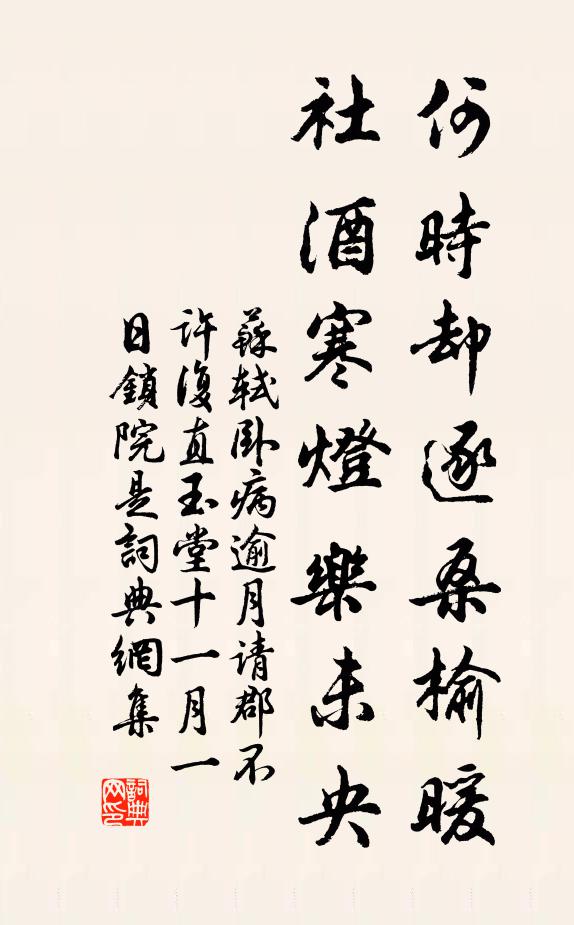 何時却逐桑榆暖
社酒寒燈樂未央
蘇軾卧病逾月请郡不
许復直玉堂十一月一
日鎖院是詞典網集
詞典
网印